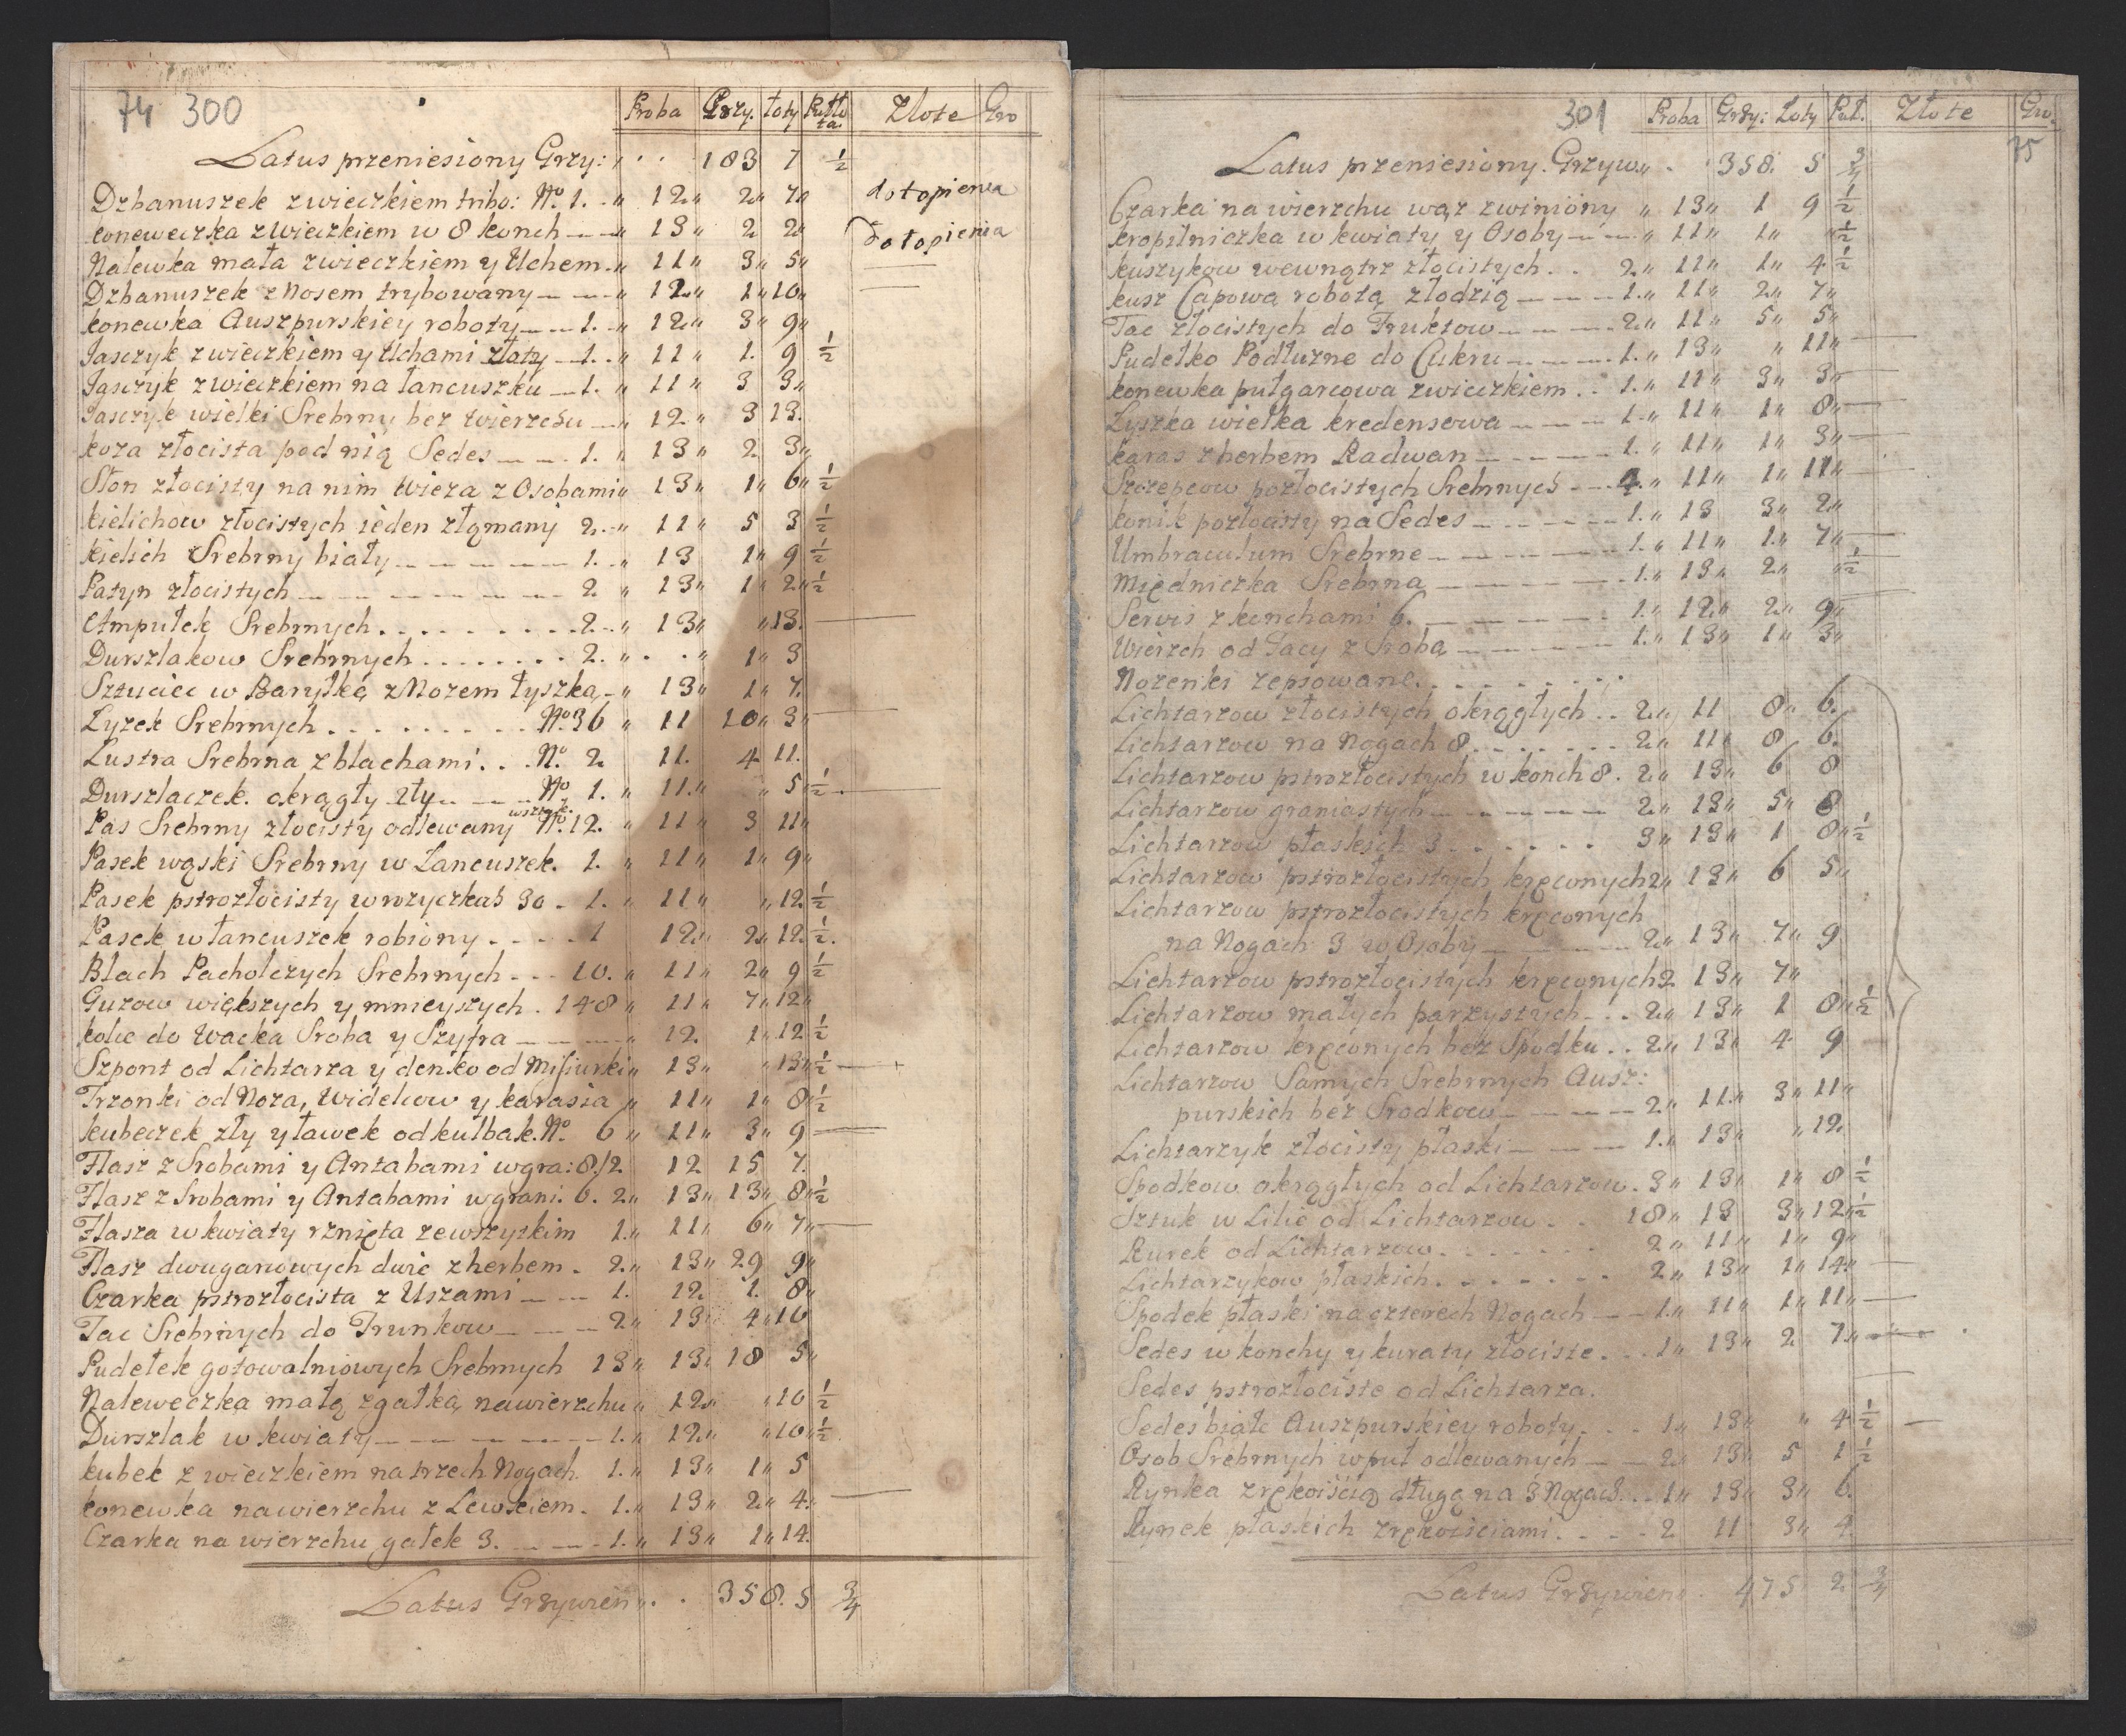 74 300
Proba Grzy. Łoty Pułło ta. Złote Gro
Latus przeniesiony Grzy: 183 7 ½
Dzbanuszek z wieczkiem tribo: No. 1. 12 2 7 do topienia
koneweczka z wieczkiem w 8 konch 13 2 2 do topienia
Nalewka mała z wieczkiem y Uchem 11 3 5
Dzbanuszek z Nosem trybowany 12 1 10
konewka Auszpurskiey roboty 1. 12 3 9
Jasczyk z wieczkiem y Uchami złoty 1. 11 1. 9 ½
Jasczyk z wieczkiem na łancuszku 1. 11 3 3
Jasczyk wielki Srebrny bez wierzchu 12 3 13.
koza złocista pod nią Sedes 1. 13 2 3
Słon złocisty na nim wieza z Osobami 13 1 6 ½
kielichow złocistych ieden złamany 2. 11 5 3 ½
kielich Srebrny biały 1. 13 1 9 ½
Patyn złocistych 2 13 1 2 ½
Ampułek Srebrnych 2 13 13.
Durszlakow Srebrnych 2. 1 3
Sztuciec w Baryłkę z Nozem łyszką 13 1 7.
Łyzek Srebrnych No. 36 11 10 3
Lustra Srebrna z blachami N. 2 11. 4 11.
Durszlaczek okrągły zły No 1. 11 5 ½
Pas Srebrny złocisty odlewany wsztuk. No. 12. 11 3 11
Pasek wąski Srebrny w Łancuszek. 1. 11 1 9
Pasek pstrozłocisty w rozyczkach 30 1. 11 12 ½
Pasek w łancuszek robiony 1 12 2 12 ½.
Blach Pacholczych Srebrnych 10. 11 2 9 ½
Guzow większych y mnieyszych. 148 11 7 12
kolce do wacka Sroba y Szyfra 12. 1 12 ½
Szpont od Lichtarza y denko od Misiurki 13 13 ½
Trzonki od Noza, widelcow y karasia 11 1 8 ½
kubeczek zły y ławek od kulbak. No. 6 11 3 9
Flasz z Srobami y Antabami w gra: 8./2 12 15 7.
Flasz z Srobami y Antabami w grani. 6. 2 13 13 8 ½
Flasza w kwiaty rznięta ze wszyskim 1. 11 6 7
Flasz dwuganowych dwie z herbem 2. 13 29 9
Czarka pstrozłocista z Uszami 1. 12 1. 8
Tac Srebrnych do Trunkow 2 13 4 10
Pudełek gotowalniowych Srebrnych 13 13 18 5
Naleweczka małą z gałką na wierzchu 12 10 ½
Durszlak w kwiaty 1. 12 10 ½
kubek z wieczkiem na trzech Nogach 1. 13 1 5
konewka na wierzchu z Lewkiem 1. 13 2 4.
Czarka na wierzchu gałek 3. 1. 13 1 14.
Latus Grzywien 358. 5 ¾
301
Proba Grzy: Łoty Puł. Złote Gro.
75
Latus przeniesiony Grzyw. 358. 5 ¾
Czarka na wierzchu wąz zwiniony 13 1 9 ½
kropilniczka w kwiaty y Osoby 11 1 ½
kuszykow wewnątrz złocistych 2 11 1 4 ½
kusz Capową robotą złodzią 1. 11 2 7
Tac złocistych do Fruktow 2 11 5 5
Pudełko Podłuzne do Cukru 1. 13 11
konewka pułgarcowa z wieczkiem 1. 11 3 3
Łyszka wielka kredensowa 1. 11 1 8
karas z herbem Radwan 1. 11 1 3
Szczepcow pozłocistych Srebrnych 4. 11 1 11
konik pozłocisty na Sedes 1. 13 3 2
Umbraculum Srebrne 1. 11 1. 7
Miedniczka Srebrna 1. 13 2 ½
Serwis z konchami 6. 1. 12 2 9
Wierzch od Tacy z Srobą 1. 13 1 3
Nozenki zepsowane
Lichtarzow złocistych okrągłych 2 11 8 6.
Lichtarzow na Nogach 8 2 11 8 6.
Lichtarzow pstrozłocistych w konch 8. 2 13 6 8
Lichtarzow graniastych 2 13 5 8
Lichtarzow płaskich 3 3 13 1 8 ½
Lichtarzow pstrozłocistych kręconych 2 13 6 5
Lichtarzow pstrozłocistych kręconych
na Nogach 3 w Osoby 2 13 7 9
Lichtarzow pstrozłocistych kręconych 2 13 7
Lichtarzow małych parzystych 2 13 1 8 ½
Lichtarzow kręconych bez Spodku 2 13 4 9
Lichtarzow Samych Srebrnych Ausz:
purskich bez Srodkow 2 11 3 11
Lichtarzyk złocisty płaski 1. 13 12.
Spodkow okrągłych od Lichtarzow. 3 13 1 8 ½
Sztuk w Lilie od Lichtarzow 18 13 3 12 ½
Rurek od Lichtarzow 2 11 1 9
Lichtarzykow płaskich 2 13 1 14
Spodek płaski na czterech Nogach 1. 11 1 11
Sedes w konchy y kwiaty złociste 1 13 2 7
Sedes pstrozłociste od Lichtarza.
Sedes białe Auszpurskiey roboty 1 13 4 ½
Osob Srebrnych w puł odlewanych 2 13 5 1 ½
Rynka z rękoiścią długą na 3 Nogach 1 13 3 6.
Rynek płaskich z rękoiściami 2 11 3 4
Latus Grzywien 475 2 ¾